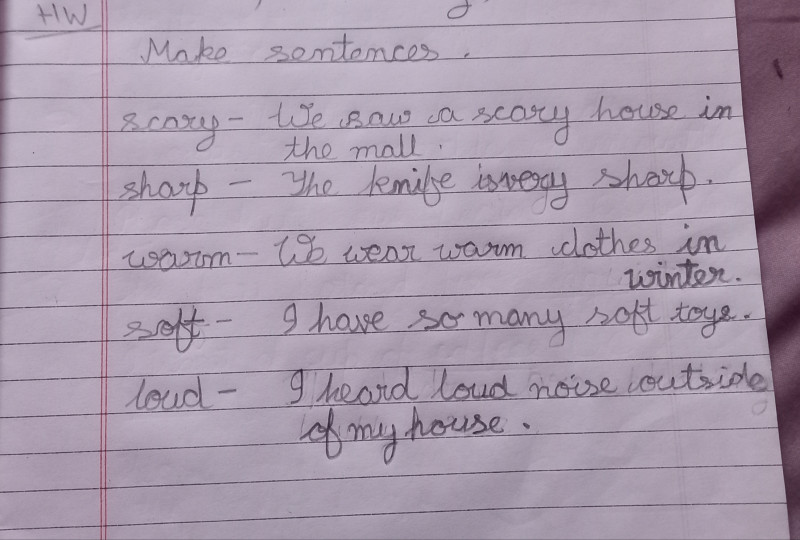 HW
Make sentences.
scary - We saw a scary house in
the mall.
sharp - The knife is very sharp.
warm - We wear warm clothes in
winter.
soft - I have so many soft toys.
loud - I heard loud noise outside
of my house.